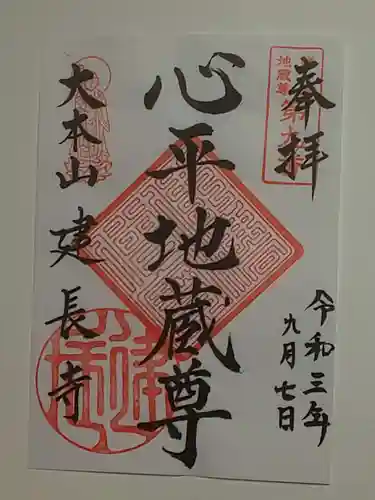 奉拝
令和三年
九月七日
心平地蔵尊
大本山 建長寺
地蔵尊